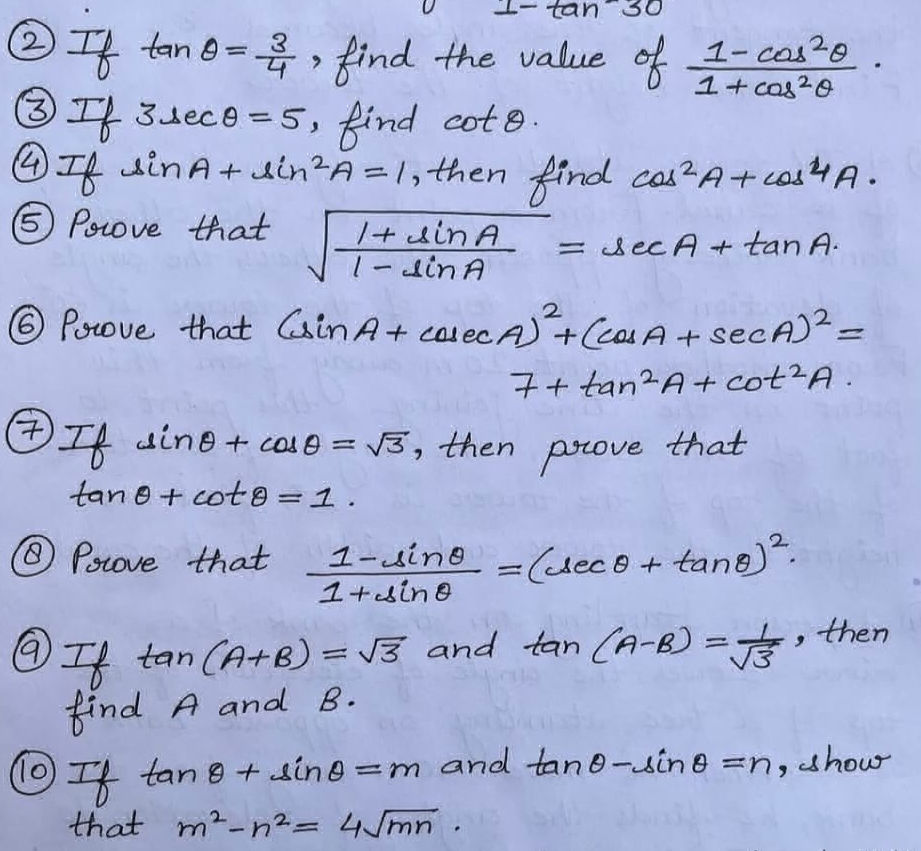 1 - tan² 30
② If tan θ = 3/4, find the value of (1 - cos²θ)/(1 + cos²θ).
③ If 3 sec θ = 5, find cot θ.
④ If sin A + sin²A = 1, then find cos²A + cos⁴A.
⑤ Prove that √((1 + sin A)/(1 - sin A)) = sec A + tan A.
⑥ Prove that (sin A + cosec A)² + (cos A + sec A)² =
7 + tan²A + cot²A.
⑦ If sin θ + cos θ = √3, then prove that
tan θ + cot θ = 1.
⑧ Prove that (1 - sin θ)/(1 + sin θ) = (sec θ + tan θ)².
⑨ If tan (A+B) = √3 and tan (A-B) = 1/√3, then
find A and B.
⑩ If tan θ + sin θ = m and tan θ - sin θ = n, show
that m² - n² = 4√mn.